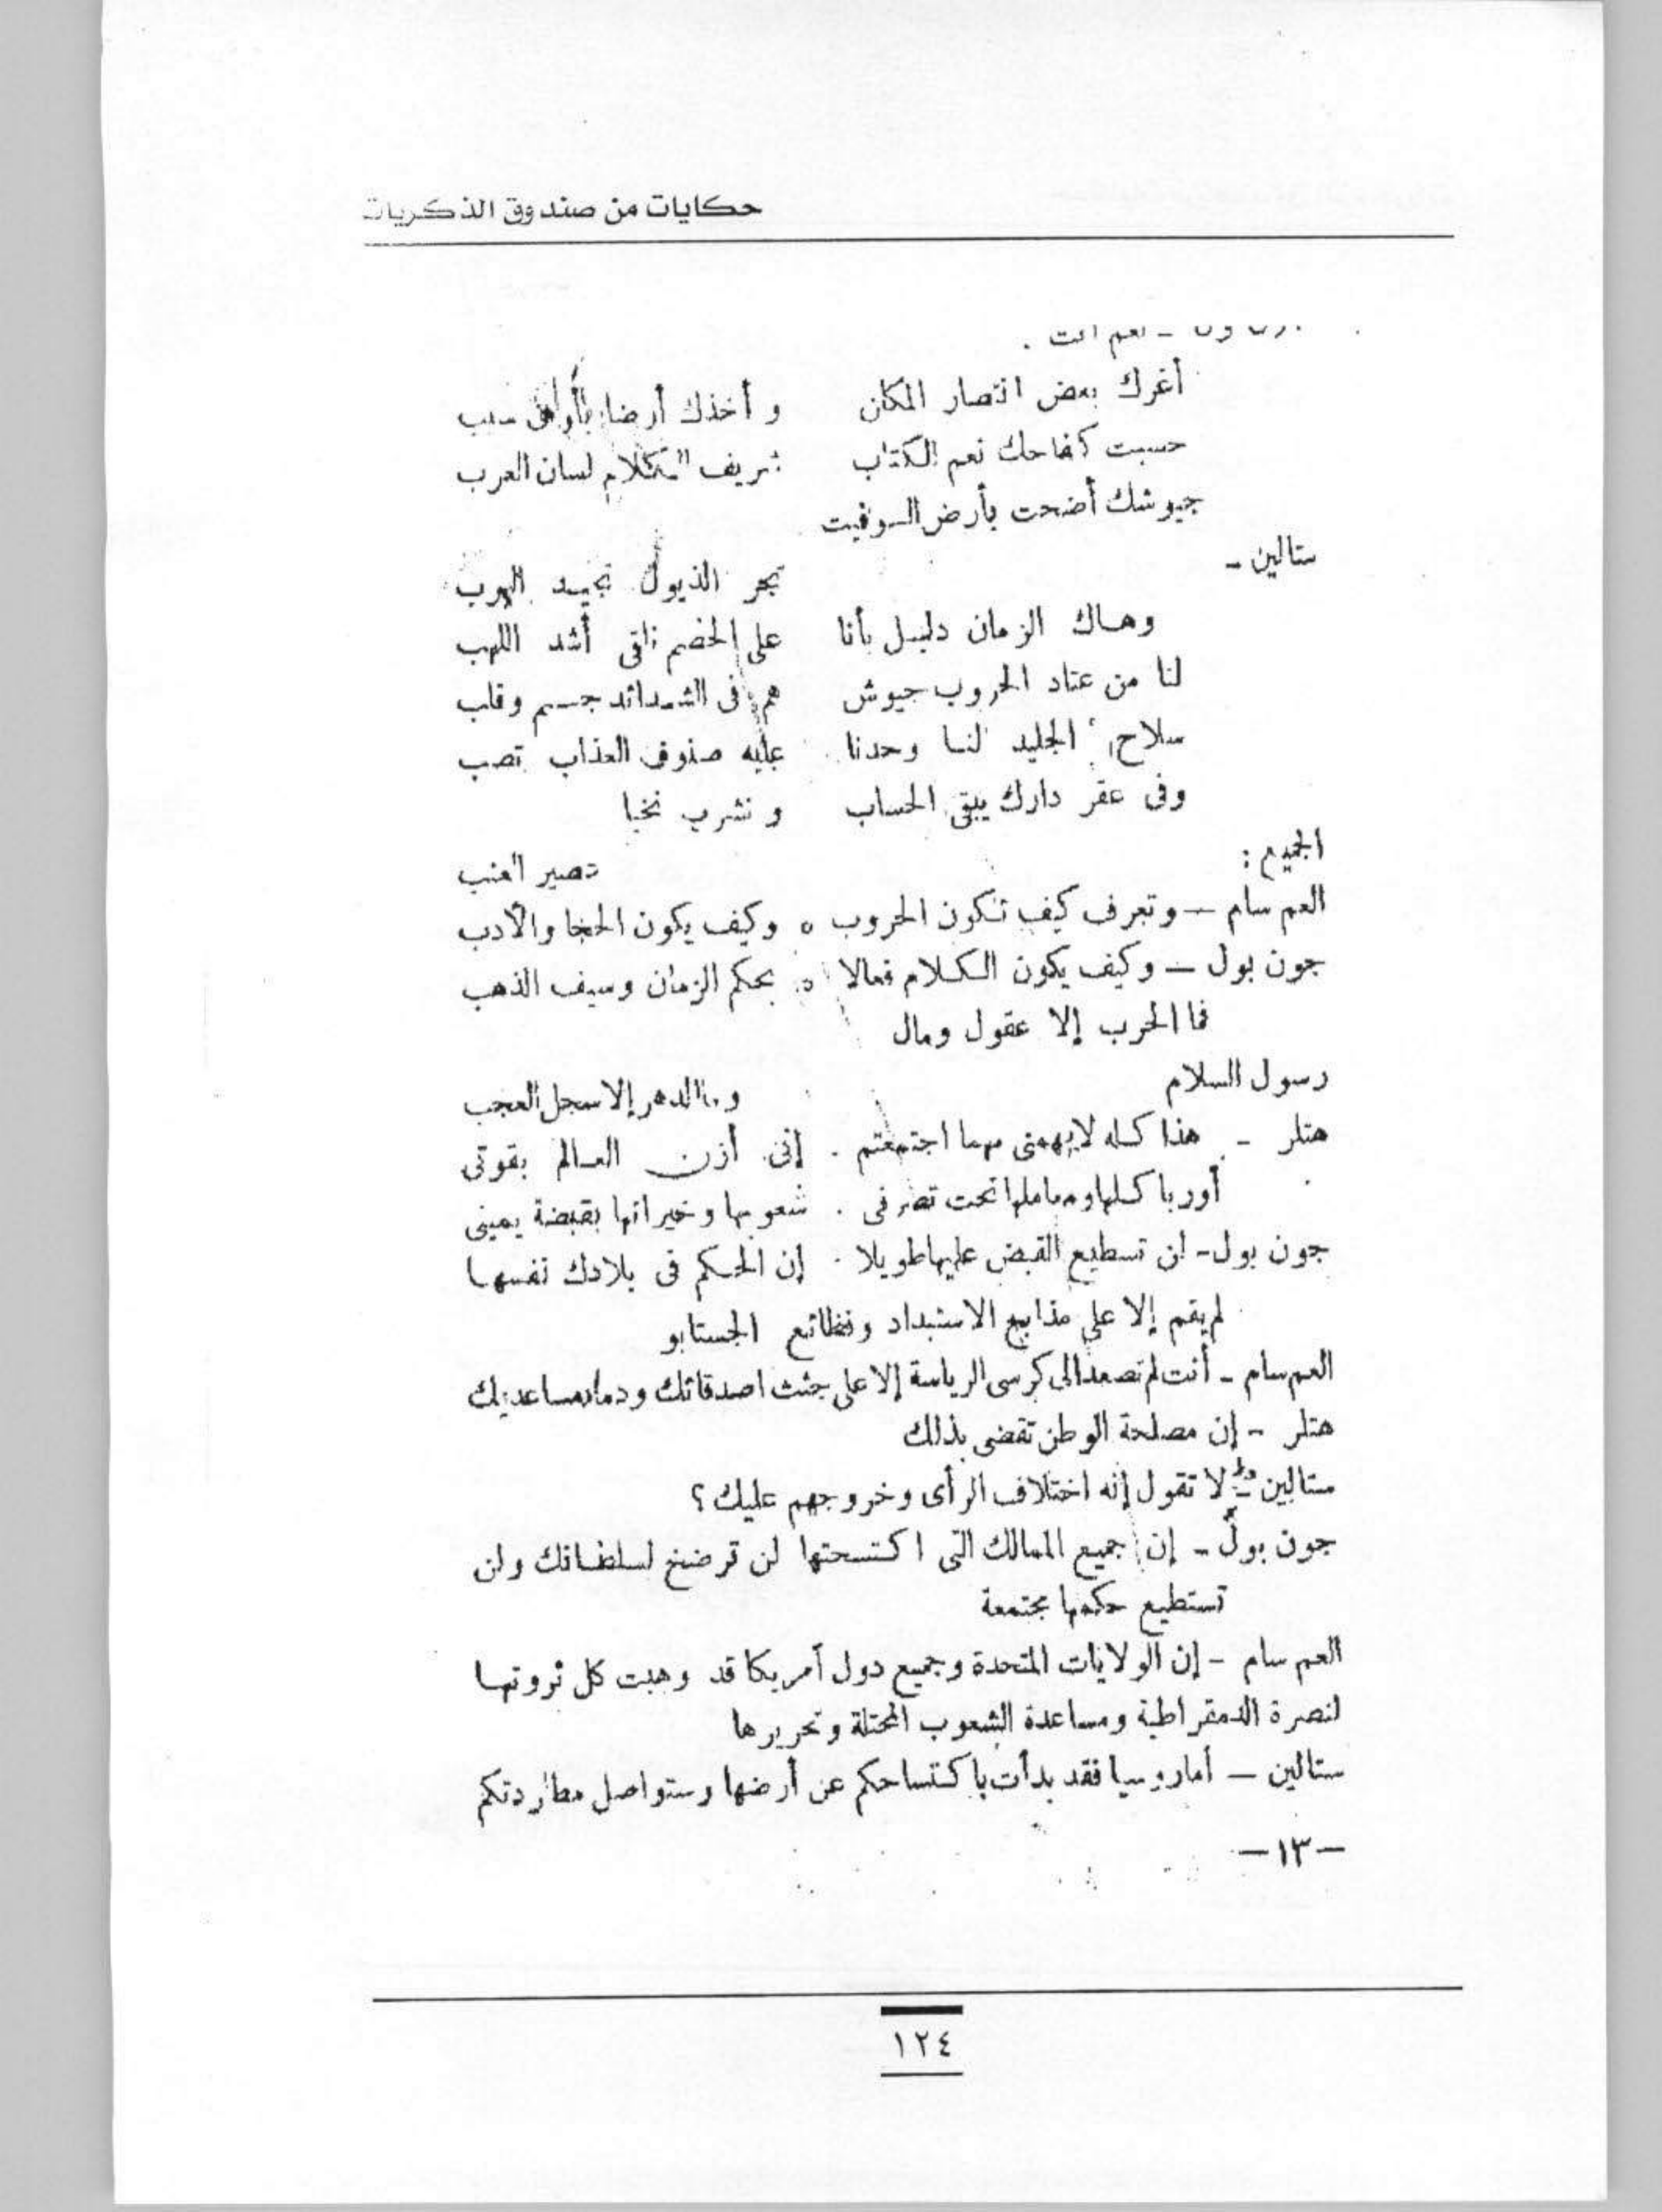 حكايات من صندوق الذكريات
ـ نعم أنت .
أغرك بعض انتصار المكان و أخذك أرضا
حسبت كفاحك نعم الكتاب شريف الكلام لسان العرب
جيوشك أضحت بأرض السوفيت
ستالين -
تجر الذيول تجيد الهرب
وهاك الزمان دليل بأنا على الخصم نلقى أشد اللهب
لنا من عتاد الحروب جيوش هم فى الشدائد جسم وقلب
سلاح الجليد لنا وحدنا عليه صنوف العذاب تصب
وفى عقر دارك يبقى الحساب ونشرب نخبا
الجميع :
تصير العنب
العم سام — وتعرف كيف تكون الحروب ه وكيف يكون الحجا والأدب
جون بول — وكيف يكون الكلام فعالا ه بحكم الزمان وسيف الذهب
فما الحرب إلا عقول ومال
رسول السلام
وما الدهر إلا سجل العجب
هتلر - هذا كله لا يهمنى مهما اجتمعتم . إنى أزن العالم بقوتى
أوربا كلها ومعاملها تحت تصرفى . شعوبها وخيراتها بقبضة يمينى
جون بول - لن تسطيع القبض عليها طويلا . إن الحكم فى بلادك نفسها
لم يقم إلا على مذابح الاستبداد وفظائع الجستابو
العم سام - أنت لم تصعد الى كرسى الرياسة إلا على جثث اصدقائك ودماء مساعديك
هتلر - إن مصلحة الوطن تقضى بذلك
ستالين - لا تقول إنه اختلاف الرأى وخروجهم عليك ؟
جون بول - إن جميع الممالك التى اكتسحتها لن ترضخ لسلطانك ولن
تستطيع حكمها مجتمعة
العم سام - إن الولايات المتحدة وجميع دول أمريكا قد وهبت كل ثروتها
لنصرة الدمقراطية ومساعدة الشعوب المحتلة وتحريرها
ستالين — أما روسيا فقد بدأت باكتساحكم عن أرضها وستواصل مطاردتكم
— ١٣ —
١٢٤